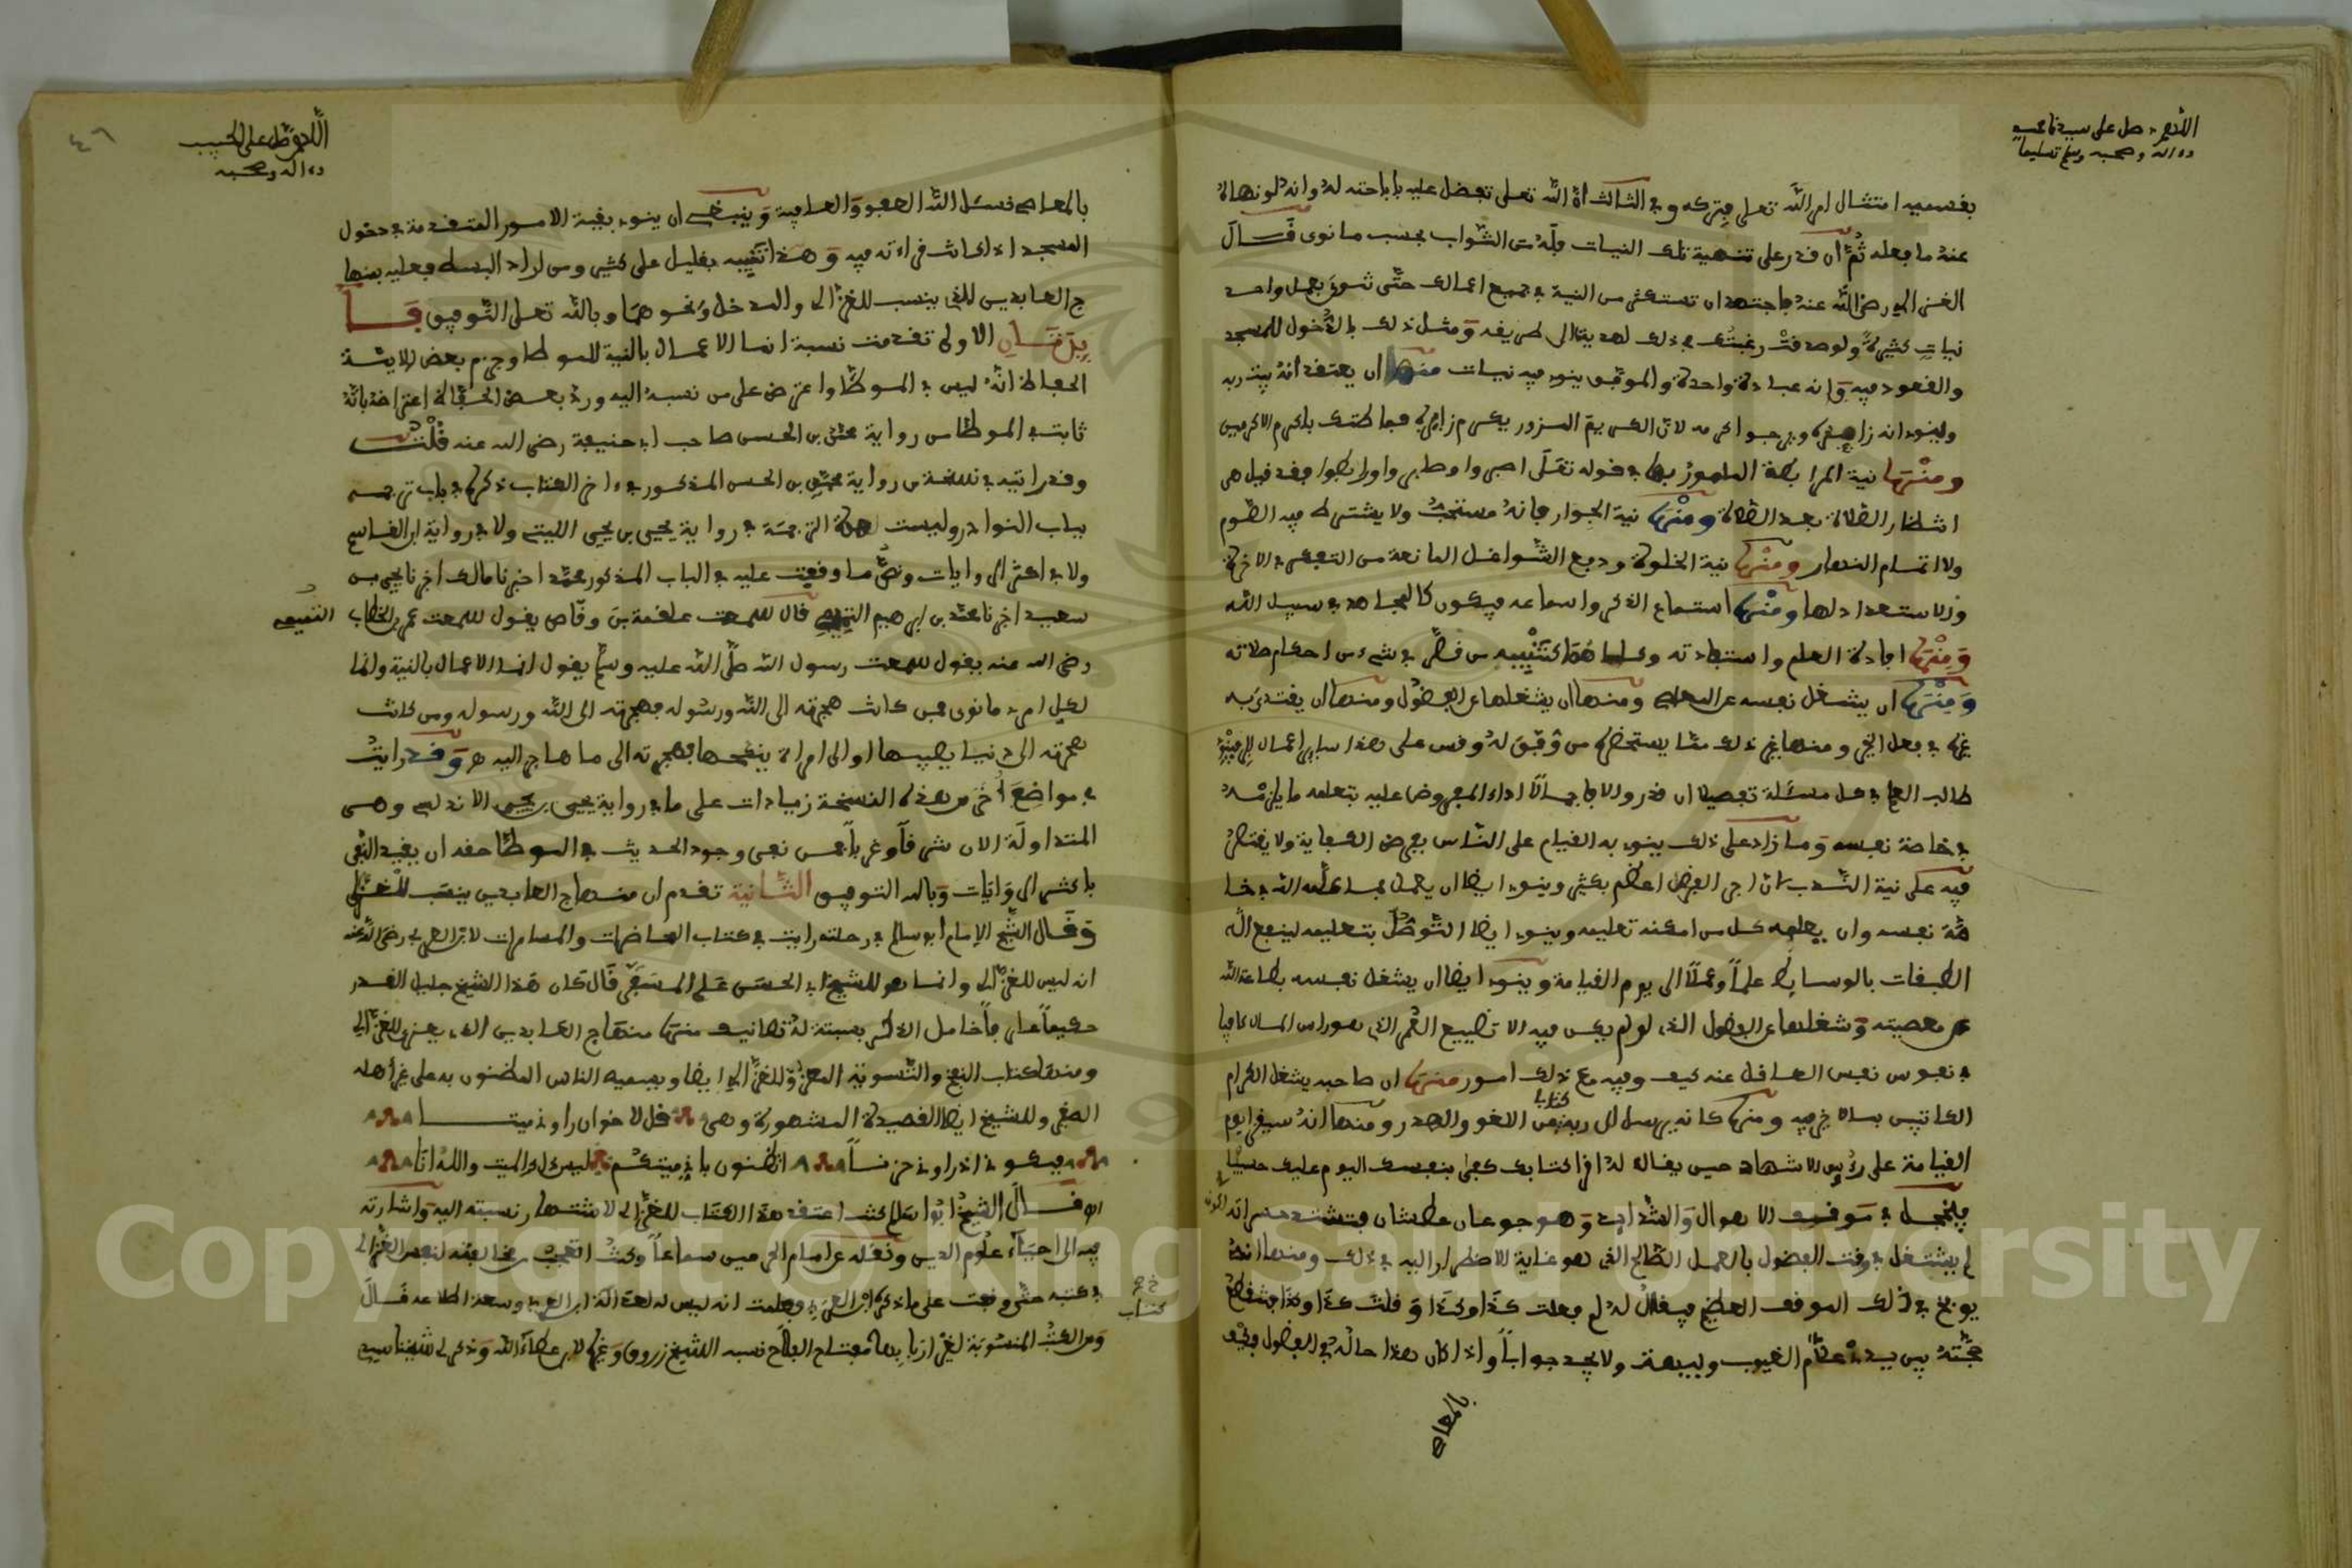 اللهم صل على سيدنا محمد
وءاله وصحبه وسلم تسليما
بقسميه امتثال امر الله تعلى بتركه وفي الثالث ان الله تعلى تفضل عليه باباحته له وانه لو نهاه
عنه ما فعله ثم ان قدر على تنمية تلك النيات فله من الثواب بحسب ما نوى قال
الغزالي رضي الله عنه فاجتهد ان تستكثر من النية في جميع اعمالك حتى تنوي بعمل واحد
نيات كثيرة ولو صدقت رغبتك في ذلك لهديت الى طريقه ومثل ذلك بالدخول للمسجد
والقعود فيه وانه عبادة واحدة والموفق ينوي فيه نيات منها ان يعتقد انه بيت ربه
وينوي انه زايره ويرجو اكرمه لان الكريم المزور يكرم زايره فما ظنك باكرم الاكرمين
ومنها نية المرابطة المامور بها في قوله تعلى اصبروا وصابروا ورابطوا فقد قيل هي
انتظار الصلاة بعد الصلاة ومنها نية الجوار فانه مستحب ولا يشترط فيه الصوم
ولا اتمام النهار ومنها نية الخلوة ودفع الشواغل المانعة من التفكر في الاخرة
والاستعداد لها ومنها استماع الذكر واسماعه فيكون كالمجاهد في سبيل الله
ومنها افادة العلم واستفادته كتنبيه من قصر في شيء من احكام صلاته
ومنها ان يشغل نفسه عن المعاصي ومنها ان يشغلها عن الفضول ومنها ان يقتدي به
غيره في فعل الخير ومنها غير ذلك مما يستحضره من وفق له وقس على هذا ساير اعمال
طالب العلم في كل مسئلة تفصيلا ان قدر والا فاجمالا اداء المفروض عليه بتعلمه ما يلزمه
في خاصة نفسه وما زاد على ذلك ينوي به القيام على الناس بفرض الكفاية ولا يقتصر
فيه على نية الندب لان اجر الفرض اعظم بكثير وينوي ايضا ان يعمل بما علمه الله في خا
صة نفسه وان يعلمه كل من امكنه تعليمه وينوي ايضا التوصل بتعليمه لينفع الله
الطبقات بالوسايط علما وعملا الى يوم القيامة وينوي ايضا ان يشغل نفسه بطاعة الله
عن معصيته وشغلها عن الفضول الذي لو لم يكن فيه الا تضييع العمر الذي هو راس المال كافيا
في نفوس نفيس العاقل عنه كيف وفيه مع ذلك امور منها ان صاحبه يشغل الكرام
الكاتبين بما لا خير فيه ومنها كانه يرسل الى ربه كتابا من اللغو والهذر ومنها انه سيقرا يوم
القيامة على رؤس الاشهاد حين يقال له اقرا كتابك كفى بنفسك اليوم عليك حسيبا
فيخجل في موقف الاهوال والشدايد وهو جوعان عطشان فتشتد حسراته
لم يشتغل في وقت الفضول بالعمل الصالح الذي هو غاية الاضطرار اليه في ذلك ومنها انه
يوبخ في ذلك الموقف العظيم فيقال له لم فعلت كذا وكذا وقلت كذا وكذا فتنقطع
حجته بين يدي علام الغيوب ولا يجد جوابا واذا كان هذا حاله في الفضول فكيف
بالمعاصي
اللهم صل على الحبيب
وءاله وصحبه
٤٦
بالمعاصي نسئل الله العفو والعافية وينبغي ان ينوي بقية الامور المتقدمة في دخول
المسجد اذا كانت قراءته فيه وهذا تنبيه بقليل على كثير ومن اراد البسط فعليه بمنها
ج العابدين الذي ينسب للغزالي والمدخل ونحوهما وبالله تعلى التوفيق فا
يدتان الاولى تقدمت نسبة انما الاعمال بالنية للموطا وجزم بعض الايمة
الحفاظ انه ليس في الموطا واعترض على من نسبه اليه ورد بعض الحفاظ اعتراضه بانه
ثابت في الموطا من رواية محمد بن الحسن صاحب ابي حنيفة رضي الله عنه قلت
وقد رايته في نسخة من رواية محمد بن الحسن المذكور في ءاخر الكتاب ذكره في باب ترجمه
بباب النوادر وليست هذه الترجمة في رواية يحيى بن يحيى الليثي ولا في رواية ابن القاسم
ولا في اكثر الروايات ونص ما وقفت عليه في الباب المذكور محمد اخبرنا مالك اخبرنا يحيى بن
سعيد اخبرنا محمد بن ابرهيم التيمي قال سمعت علقمة بن وقاص يقول سمعت عمر بن الخطاب
رضي الله عنه يقول سمعت رسول الله صلى الله عليه وسلم يقول انما الاعمال بالنية وانما
لكل امرء ما نوى فمن كانت هجرته الى الله ورسوله فهجرته الى الله ورسوله ومن كانت
هجرته الى دنيا يصيبها او الى امراة ينكحها فهجرته الى ما هاجر اليه هـ وقد رايت
في مواضع اخر من هذه النسخة زيادات على ما في رواية يحيى بن يحيى الاندلسي وهي
المتداولة الان شرقا وغربا فمن نفى وجود الحديث في الموطا حقه ان يقيد النفي
باكثر الروايات وبالله التوفيق الثانية تقدم ان منهاج العابدين ينسب للغزالي
وقال الشيخ الامام ابو سالم في رحلته رايت في كتاب المحاضرات والمسامرات لابن العربي رضي الله عنه
انه ليس للغزالي وانما هو للشيخ ابي الحسن علي المسفر قال كان هذا الشيخ جليل القدر
حكيما عارفا خامل الذكر بسبتة له تصانيف منها منهاج العابدين الذي يعزى للغزالي
ومنها كتاب النفخ والتسوية المعزو للغزالي ايضا ويسميه الناس المضنون به على غير اهله
الصغير وللشيخ ايضا القصيدة المشهورة وهي قل لاخوان راوني ميتا
فبكوني اذ راوني حزنا اتظنون باني ميتكم ليس ذاك الميت والله انا
قال الشيخ ابو سالم كنت اعتقد هذا الكتاب للغزالي لاشتهار نسبته اليه واشارته
فيه الى احياء علوم الدين ونقله عن امام الحرمين سماعا وكنت اتعجب
في كتبه حتى وقفت على ما ذكره ابن العربي وعلمت انه ليس له لعدالة ابن العربي وسعة اطلاعه قال
ومن الكتب المنسوبة لغير اربابها مفتاح الفلاح نسبه الشيخ زروق وغيره لابن عطاء الله وذكر لي شيخنا سيدي